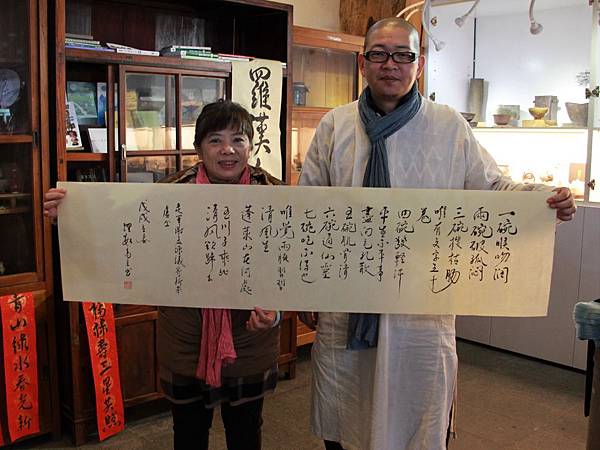 一碗喉吻潤
兩碗破孤悶
三碗搜枯腸
唯有文字五千
卷
四碗發輕汗
平生不平事
盡向毛孔散
五碗肌骨清
六碗通仙靈
七碗吃不得也
唯覺兩腋習習
清風生
蓬萊山在何處
玉川子乘此
清風欲歸去
戊戌
羅漢
青山綠水春光新
福祿壽三星共照